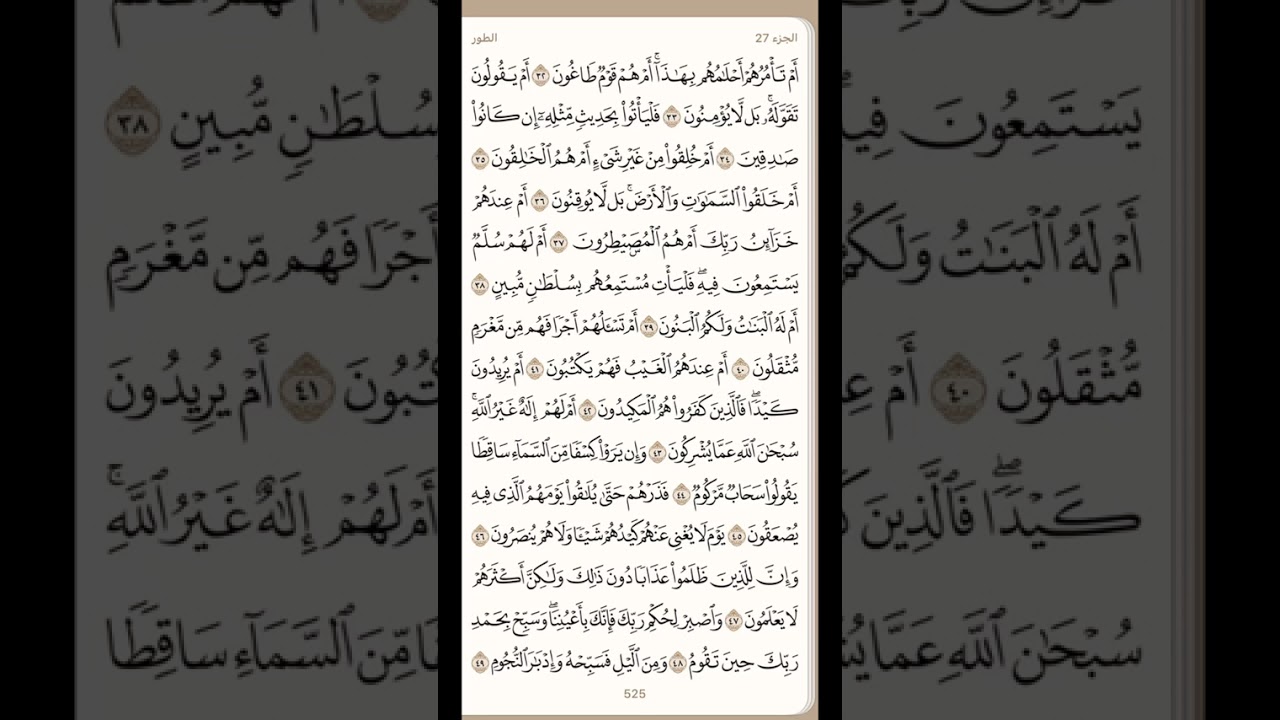 الجزء 27
الطور
أَمْ تَأْمُرُهُمْ أَحْلَٰمُهُم بِهَٰذَآ ۚ أَمْ هُمْ قَوْمٌ طَاغُونَ ٣٢ أَمْ يَقُولُونَ
تَقَوَّلَهُۥ ۚ بَل لَّا يُؤْمِنُونَ ٣٣ فَلْيَأْتُوا۟ بِحَدِيثٍ مِّثْلِهِۦٓ إِن كَانُوا۟
صَٰدِقِينَ ٣٤ أَمْ خُلِقُوا۟ مِنْ غَيْرِ شَىْءٍ أَمْ هُمُ ٱلْخَٰلِقُونَ ٣٥
أَمْ خَلَقُوا۟ ٱلسَّمَٰوَٰتِ وَٱلْأَرْضَ ۚ بَل لَّا يُوقِنُونَ ٣٦ أَمْ عِندَهُمْ
خَزَآئِنُ رَبِّكَ أَمْ هُمُ ٱلْمُصَۣيْطِرُونَ ٣٧ أَمْ لَهُمْ سُلَّمٌ
يَسْتَمِعُونَ فِيهِ ۖ فَلْيَأْتِ مُسْتَمِعُهُم بِسُلْطَٰنٍ مُّبِينٍ ٣٨
أَمْ لَهُ ٱلْبَنَٰتُ وَلَكُمُ ٱلْبَنُونَ ٣٩ أَمْ تَسْـَٔلُهُمْ أَجْرًا فَهُم مِّن مَّغْرَمٍ
مُّثْقَلُونَ ٤٠ أَمْ عِندَهُمُ ٱلْغَيْبُ فَهُمْ يَكْتُبُونَ ٤١ أَمْ يُرِيدُونَ
كَيْدًا ۖ فَٱلَّذِينَ كَفَرُوا۟ هُمُ ٱلْمَكِيدُونَ ٤٢ أَمْ لَهُمْ إِلَٰهٌ غَيْرُ ٱللَّهِ ۚ
سُبْحَٰنَ ٱللَّهِ عَمَّا يُشْرِكُونَ ٤٣ وَإِن يَرَوْا۟ كِسْفًا مِّنَ ٱلسَّمَآءِ سَاقِطًا
يَقُولُوا۟ سَحَابٌ مَّرْكُومٌ ٤٤ فَذَرْهُمْ حَتَّىٰ يُلَٰقُوا۟ يَوْمَهُمُ ٱلَّذِى فِيهِ
يُصْعَقُونَ ٤٥ يَوْمَ لَا يُغْنِى عَنْهُمْ كَيْدُهُمْ شَيْـًٔا وَلَا هُمْ يُنصَرُونَ ٤٦
وَإِنَّ لِلَّذِينَ ظَلَمُوا۟ عَذَابًا دُونَ ذَٰلِكَ وَلَٰكِنَّ أَكْثَرَهُمْ
لَا يَعْلَمُونَ ٤٧ وَٱصْبِرْ لِحُكْمِ رَبِّكَ فَإِنَّكَ بِأَعْيُنِنَا ۖ وَسَبِّحْ بِحَمْدِ
رَبِّكَ حِينَ تَقُومُ ٤٨ وَمِنَ ٱلَّيْلِ فَسَبِّحْهُ وَإِدْبَٰرَ ٱلنُّجُومِ ٤٩
525